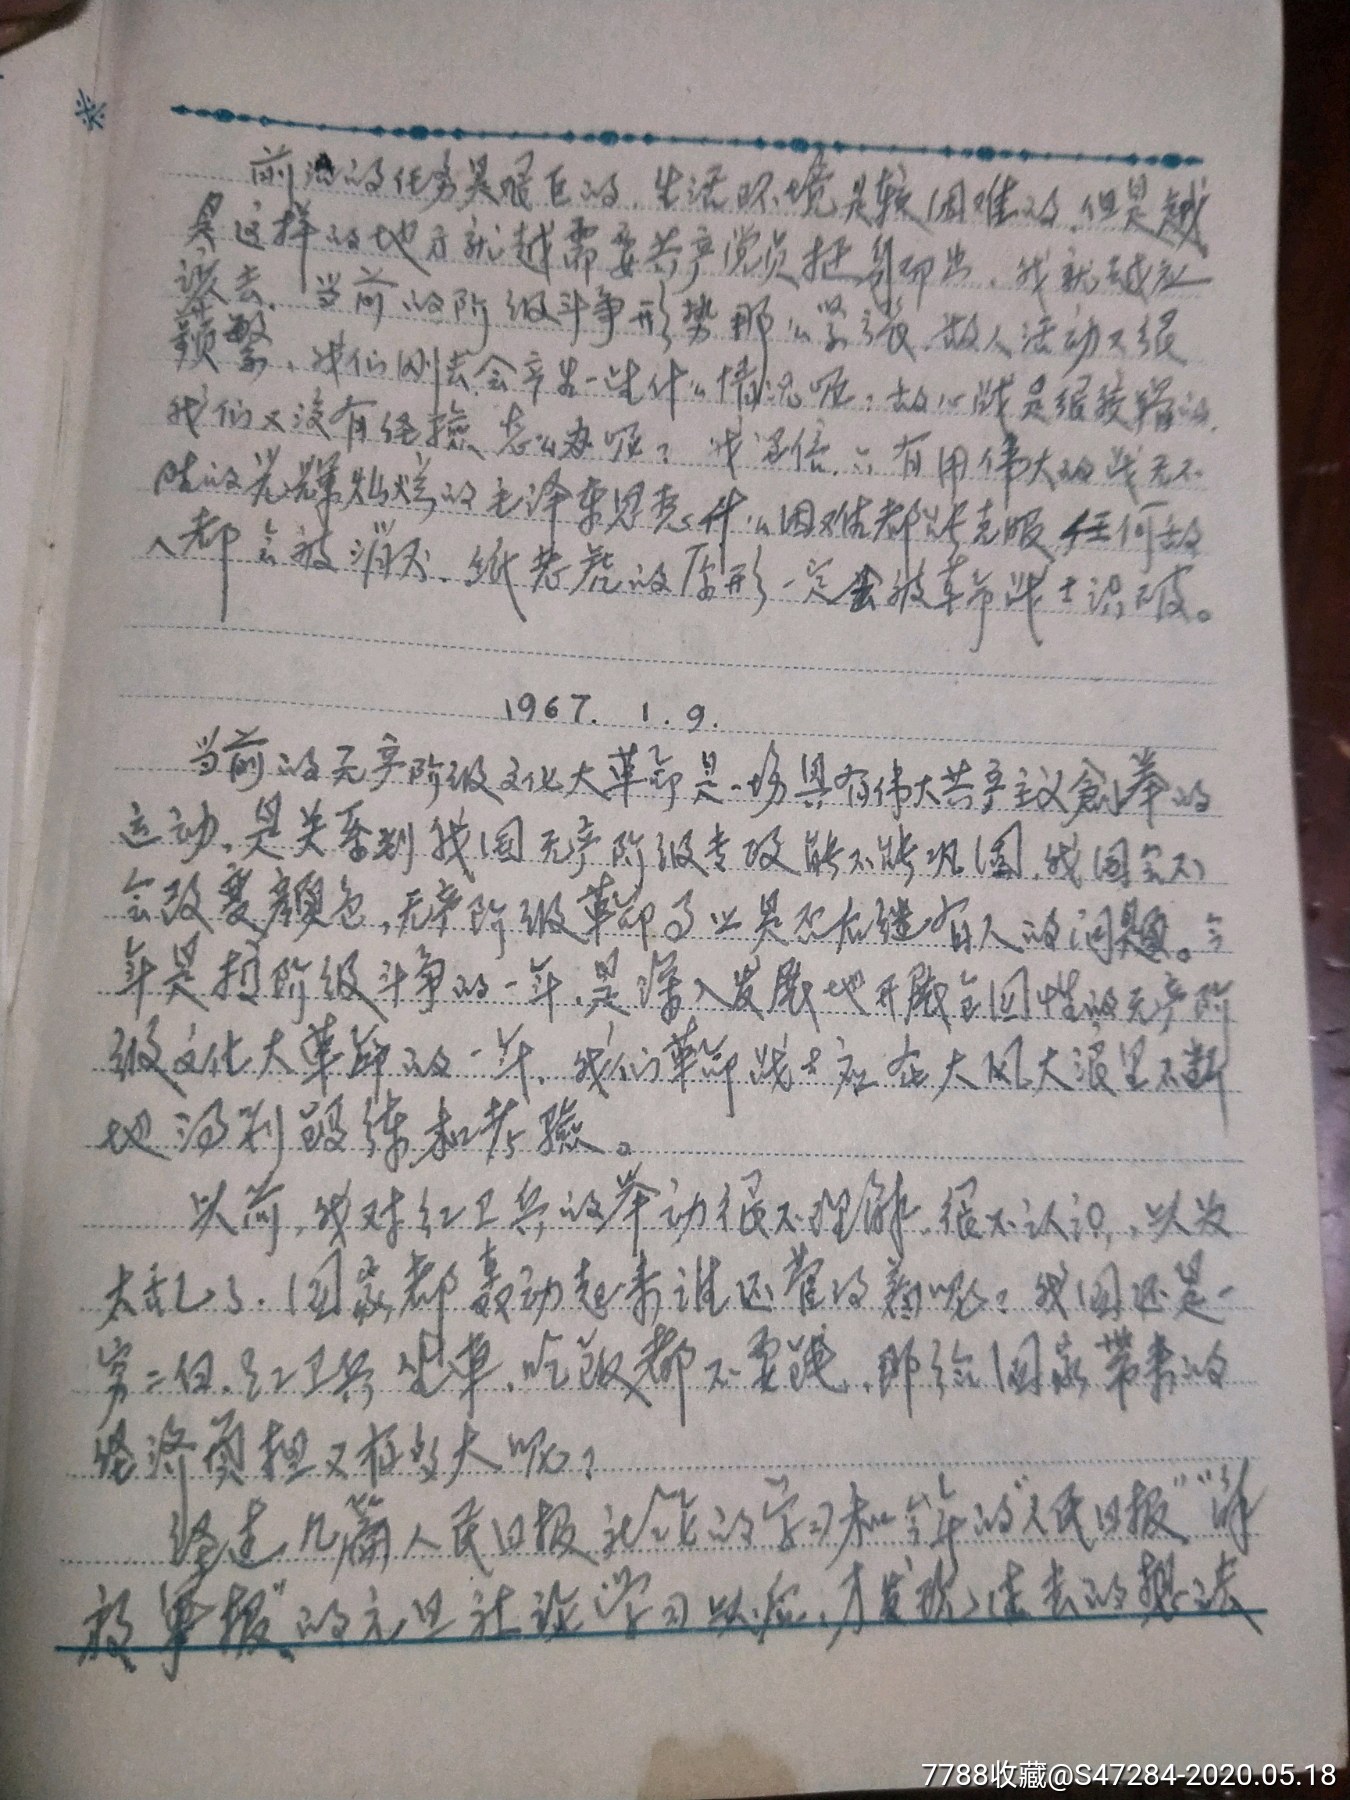 前沿的任务是艰巨的，生活环境是较困难的，但是越
是这样的地方就越需要共产党员挺身而出，我就越应
该去。当前的阶级斗争形势那么紧张，敌人活动又很
频繁，我们刚去会产生一些什么情况呢？敌心战是很狡猾的，
我们又没有经验怎么办呢？我深信，只有用伟大的战无不
胜的光辉灿烂的毛泽东思想，什么困难都能克服，任何敌
人都会被消灭，纸老虎的原形一定会被革命战士识破。
1967. 1. 9.
当前的无产阶级文化大革命是一场具有伟大共产主义创举的
运动，是关系到我国无产阶级专政能不能巩固，我国会不
会改变颜色，无产阶级革命事业是否后继有人的问题。今
年是抓阶级斗争的一年，是深入发展地开展全国性的无产阶
级文化大革命的一年，我们革命战士应在大风大浪里不断
地得到锻炼和考验。
以前，我对红卫兵的举动很不理解，很不认识，以为
太乱了，国家都轰动起来谁还管得着呢？我国还是一
穷二白，红卫兵坐车，吃饭都不要钱，那给国家带来的
经济负担又有多大呢？
经过几篇人民日报社论的学习和今年的“人民日报”“解
放军报”的元旦社论学习以后，才发现过去的想法
7788收藏@S47284-2020.05.18